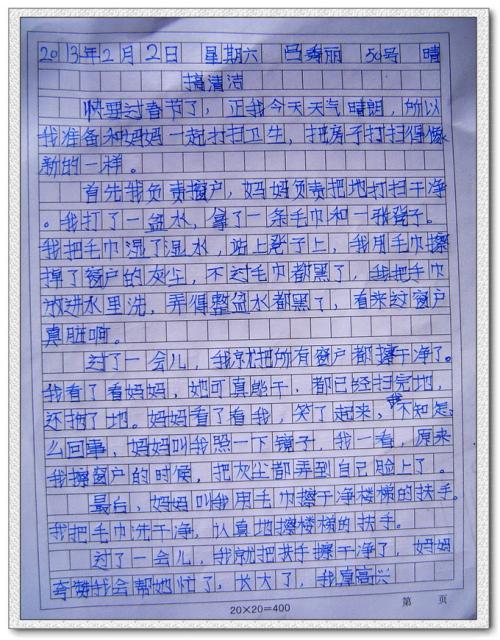 2013年2月2日 星期六 吕秀丽 50号 晴
搞清洁
快要过春节了,正我今天天气晴朗,所以
我准备和妈妈一起打扫卫生,把房子打扫得像
新的一样。
首先我负责窗户,妈妈负责把地打扫干净
。我打了一盆水,拿了一条毛巾和一张凳子。
我把毛巾湿了湿水,站上凳子上,我用毛巾擦
掉了窗户的灰尘,不过毛巾都黑了,我把毛巾
放进水里洗,弄得整盆水都黑了,看来这窗户
真脏啊。
过了一会儿,我就把所有窗户都擦干净了。
我看了看妈妈,她可真能干,都已经扫完地,
还拖了地。妈妈看了看我,笑了起来,我不知怎
么回事,妈妈叫我照一下镜子,我一看,原来
我擦窗户的时候,把灰尘都弄到自己脸上了。
最后,妈妈叫我用毛巾擦干净楼梯的扶手。
我把毛巾洗干净,认真地擦楼梯的扶手。
过了一会儿,我就把扶手擦干净了,妈妈
夸赞我会帮她忙了,长大了,我真高兴
20×20=400 第 页